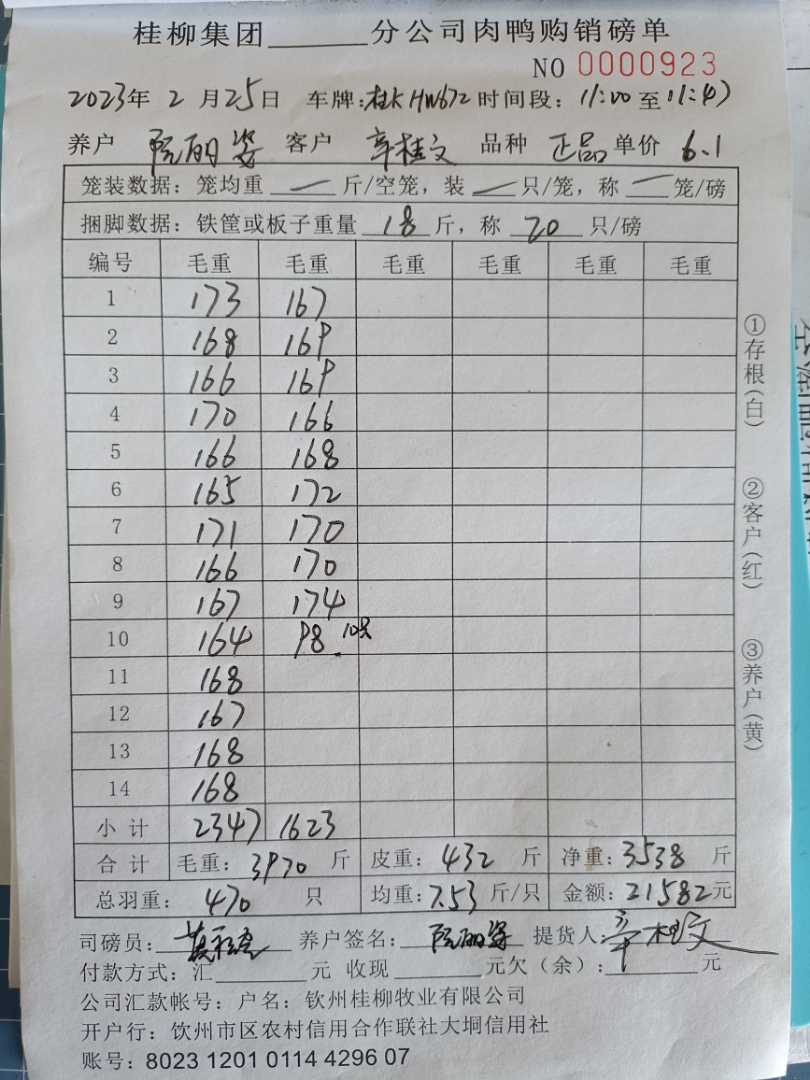 桂柳集团______分公司肉鸭购销磅单
NO 0000923
2023年 2 月 25 日 车牌:桂K HW672 时间段: 11:00 至 11:47
养户 阮丽姿 客户 辛桂文 品种 正品 单价 6.1
笼装数据: 笼均重 — 斤/空笼, 装 — 只/笼, 称 — 笼/磅
捆脚数据: 铁筐或板子重量 18 斤, 称 20 只/磅
编号 毛重 毛重 毛重 毛重 毛重 毛重
1 173 167
2 168 169
3 166 169
4 170 166
5 166 168
6 165 172
7 171 170
8 166 170
9 167 174
10 164 98. 10只
11 168
12 167
13 168
14 168
小计 2347 1623
合计 毛重: 3970 斤 皮重: 432 斤 净重: 3538 斤
总羽重: 470 只 均重: 7.53 斤/只 金额: 21582 元
司磅员: 养户签名: 阮丽姿 提货人: 辛桂文
付款方式: 汇______元 收现______元欠(余):______元
公司汇款帐号: 户名: 钦州桂柳牧业有限公司
开户行: 钦州市区农村信用合作联社大垌信用社
账号: 8023 1201 0114 4296 07
①存根(白)
②客户(红)
③养户(黄)